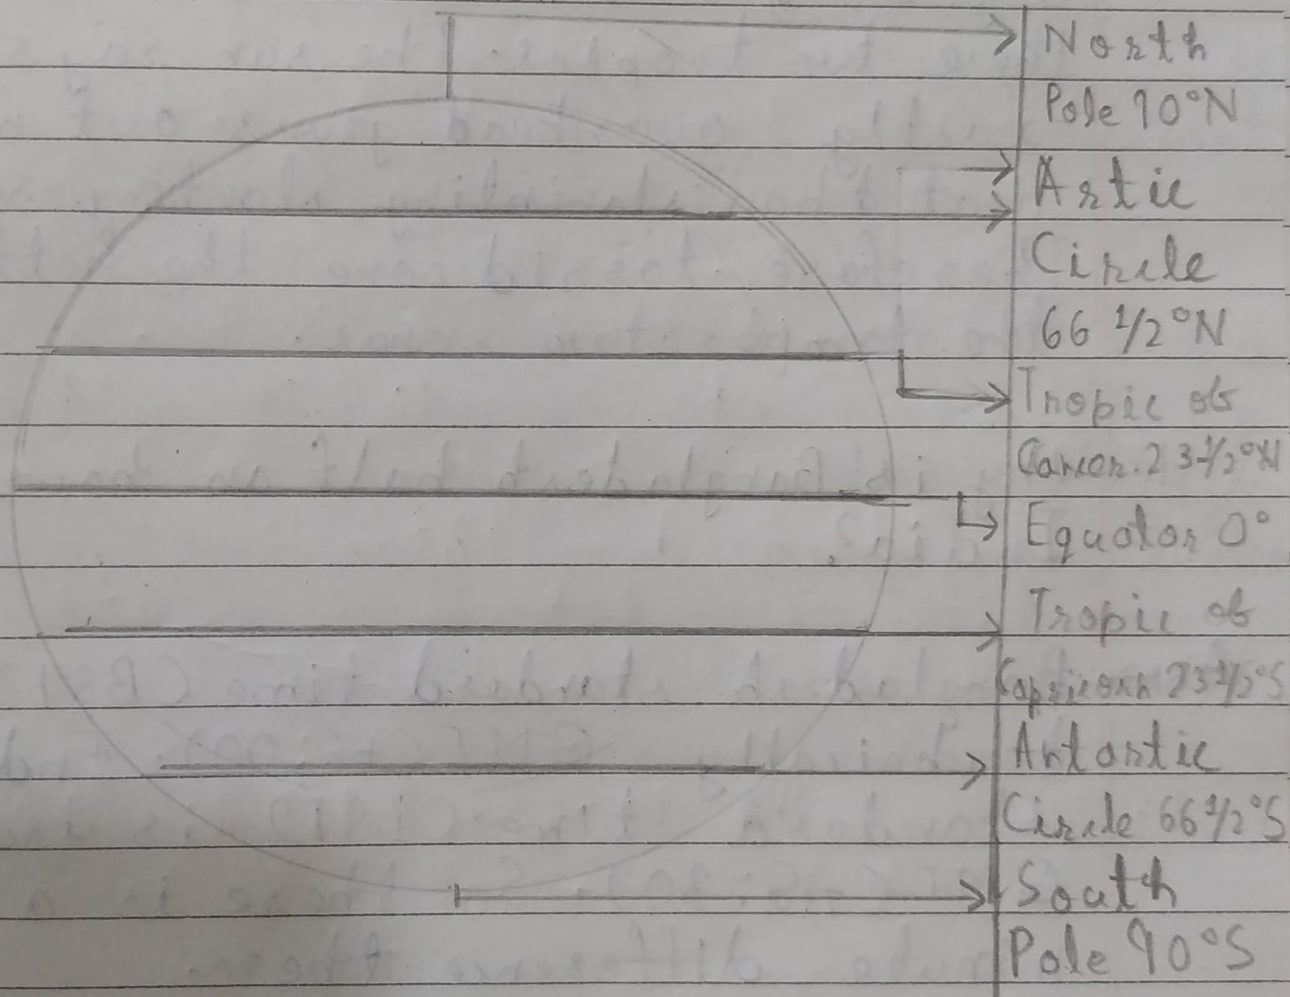 North
Pole 90°N
Artic
Circle
66 1/2°N
Tropic of
Cancer. 23 1/2°N
Equator 0°
Tropic of
Capricorn 23 1/2°S
Antartic
Circle 66 1/2°S
South
Pole 90°S